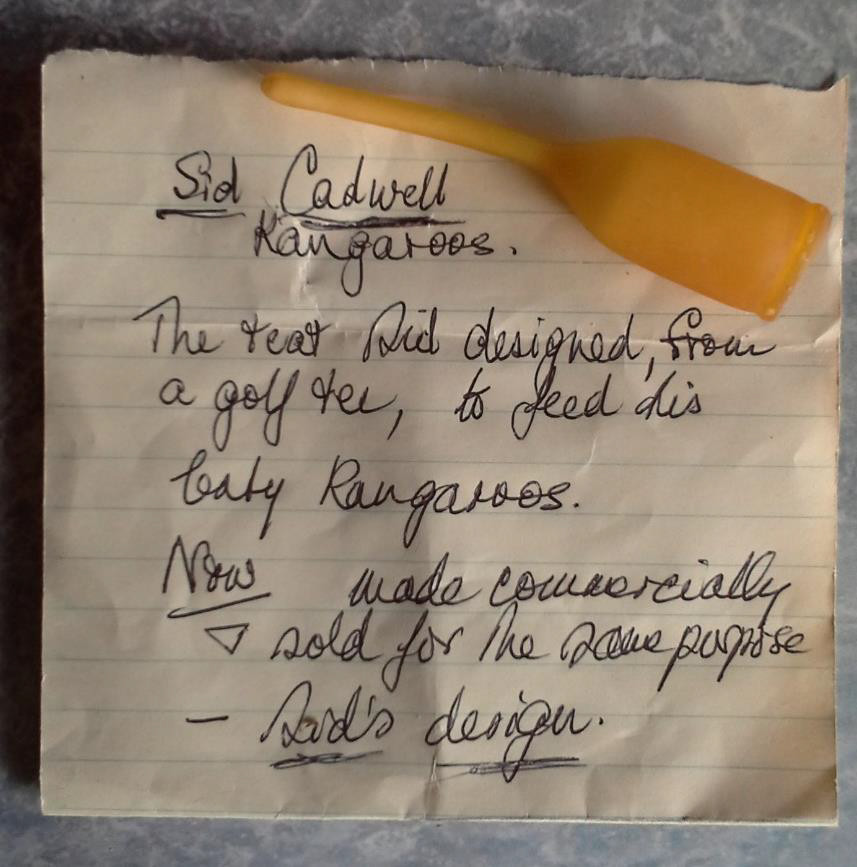 Sid Cadwell
Kangaroos.
The teat Sid designed, from
a golf tee, to feed his
baby Kangaroos.
Now made commercially
& sold for the same purpose
- Sid's design.